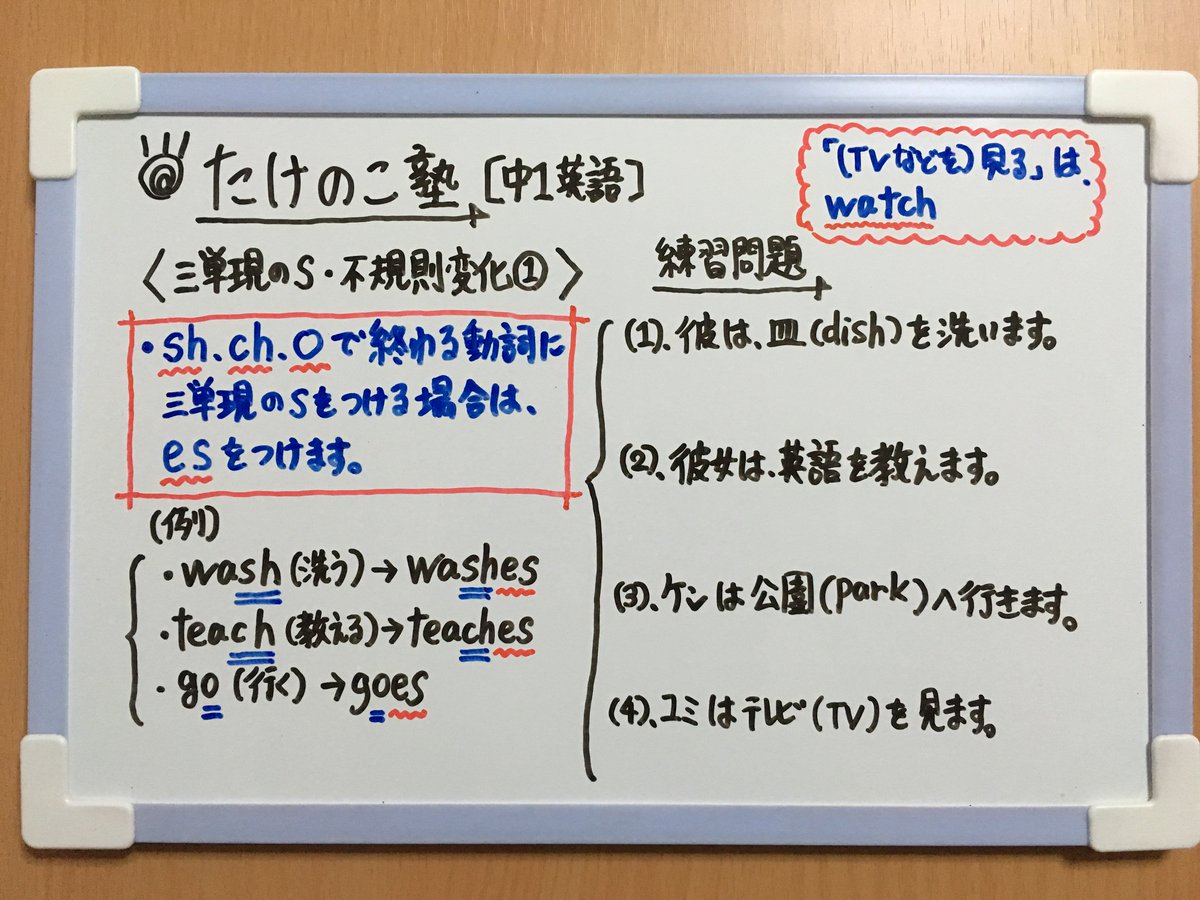 たけのこ塾 [中1英語]
〈三単現のS・不規則変化①〉
・sh.ch.oで終わる動詞に
三単現のSをつける場合は、
esをつけます。
(例)
・wash(洗う)→washes
・teach(教える)→teaches
・go(行く)→goes
「(TVなどを)見る」は、
watch
練習問題
(1)、彼は、皿(dish)を洗います。
(2)、彼女は、英語を教えます。
(3)、ケンは公園(park)へ行きます。
(4)、ユミはテレビ(TV)を見ます。